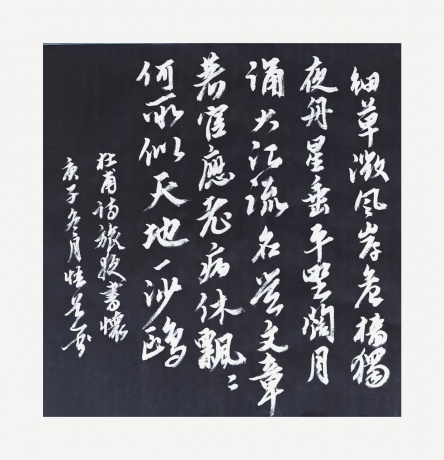 細草微風岸危檣獨
夜舟星垂平野闊月
涌大江流名豈文章
著官應老病休飄〻
何所似天地一沙鷗
杜甫詩旅夜書懷
庚子冬月